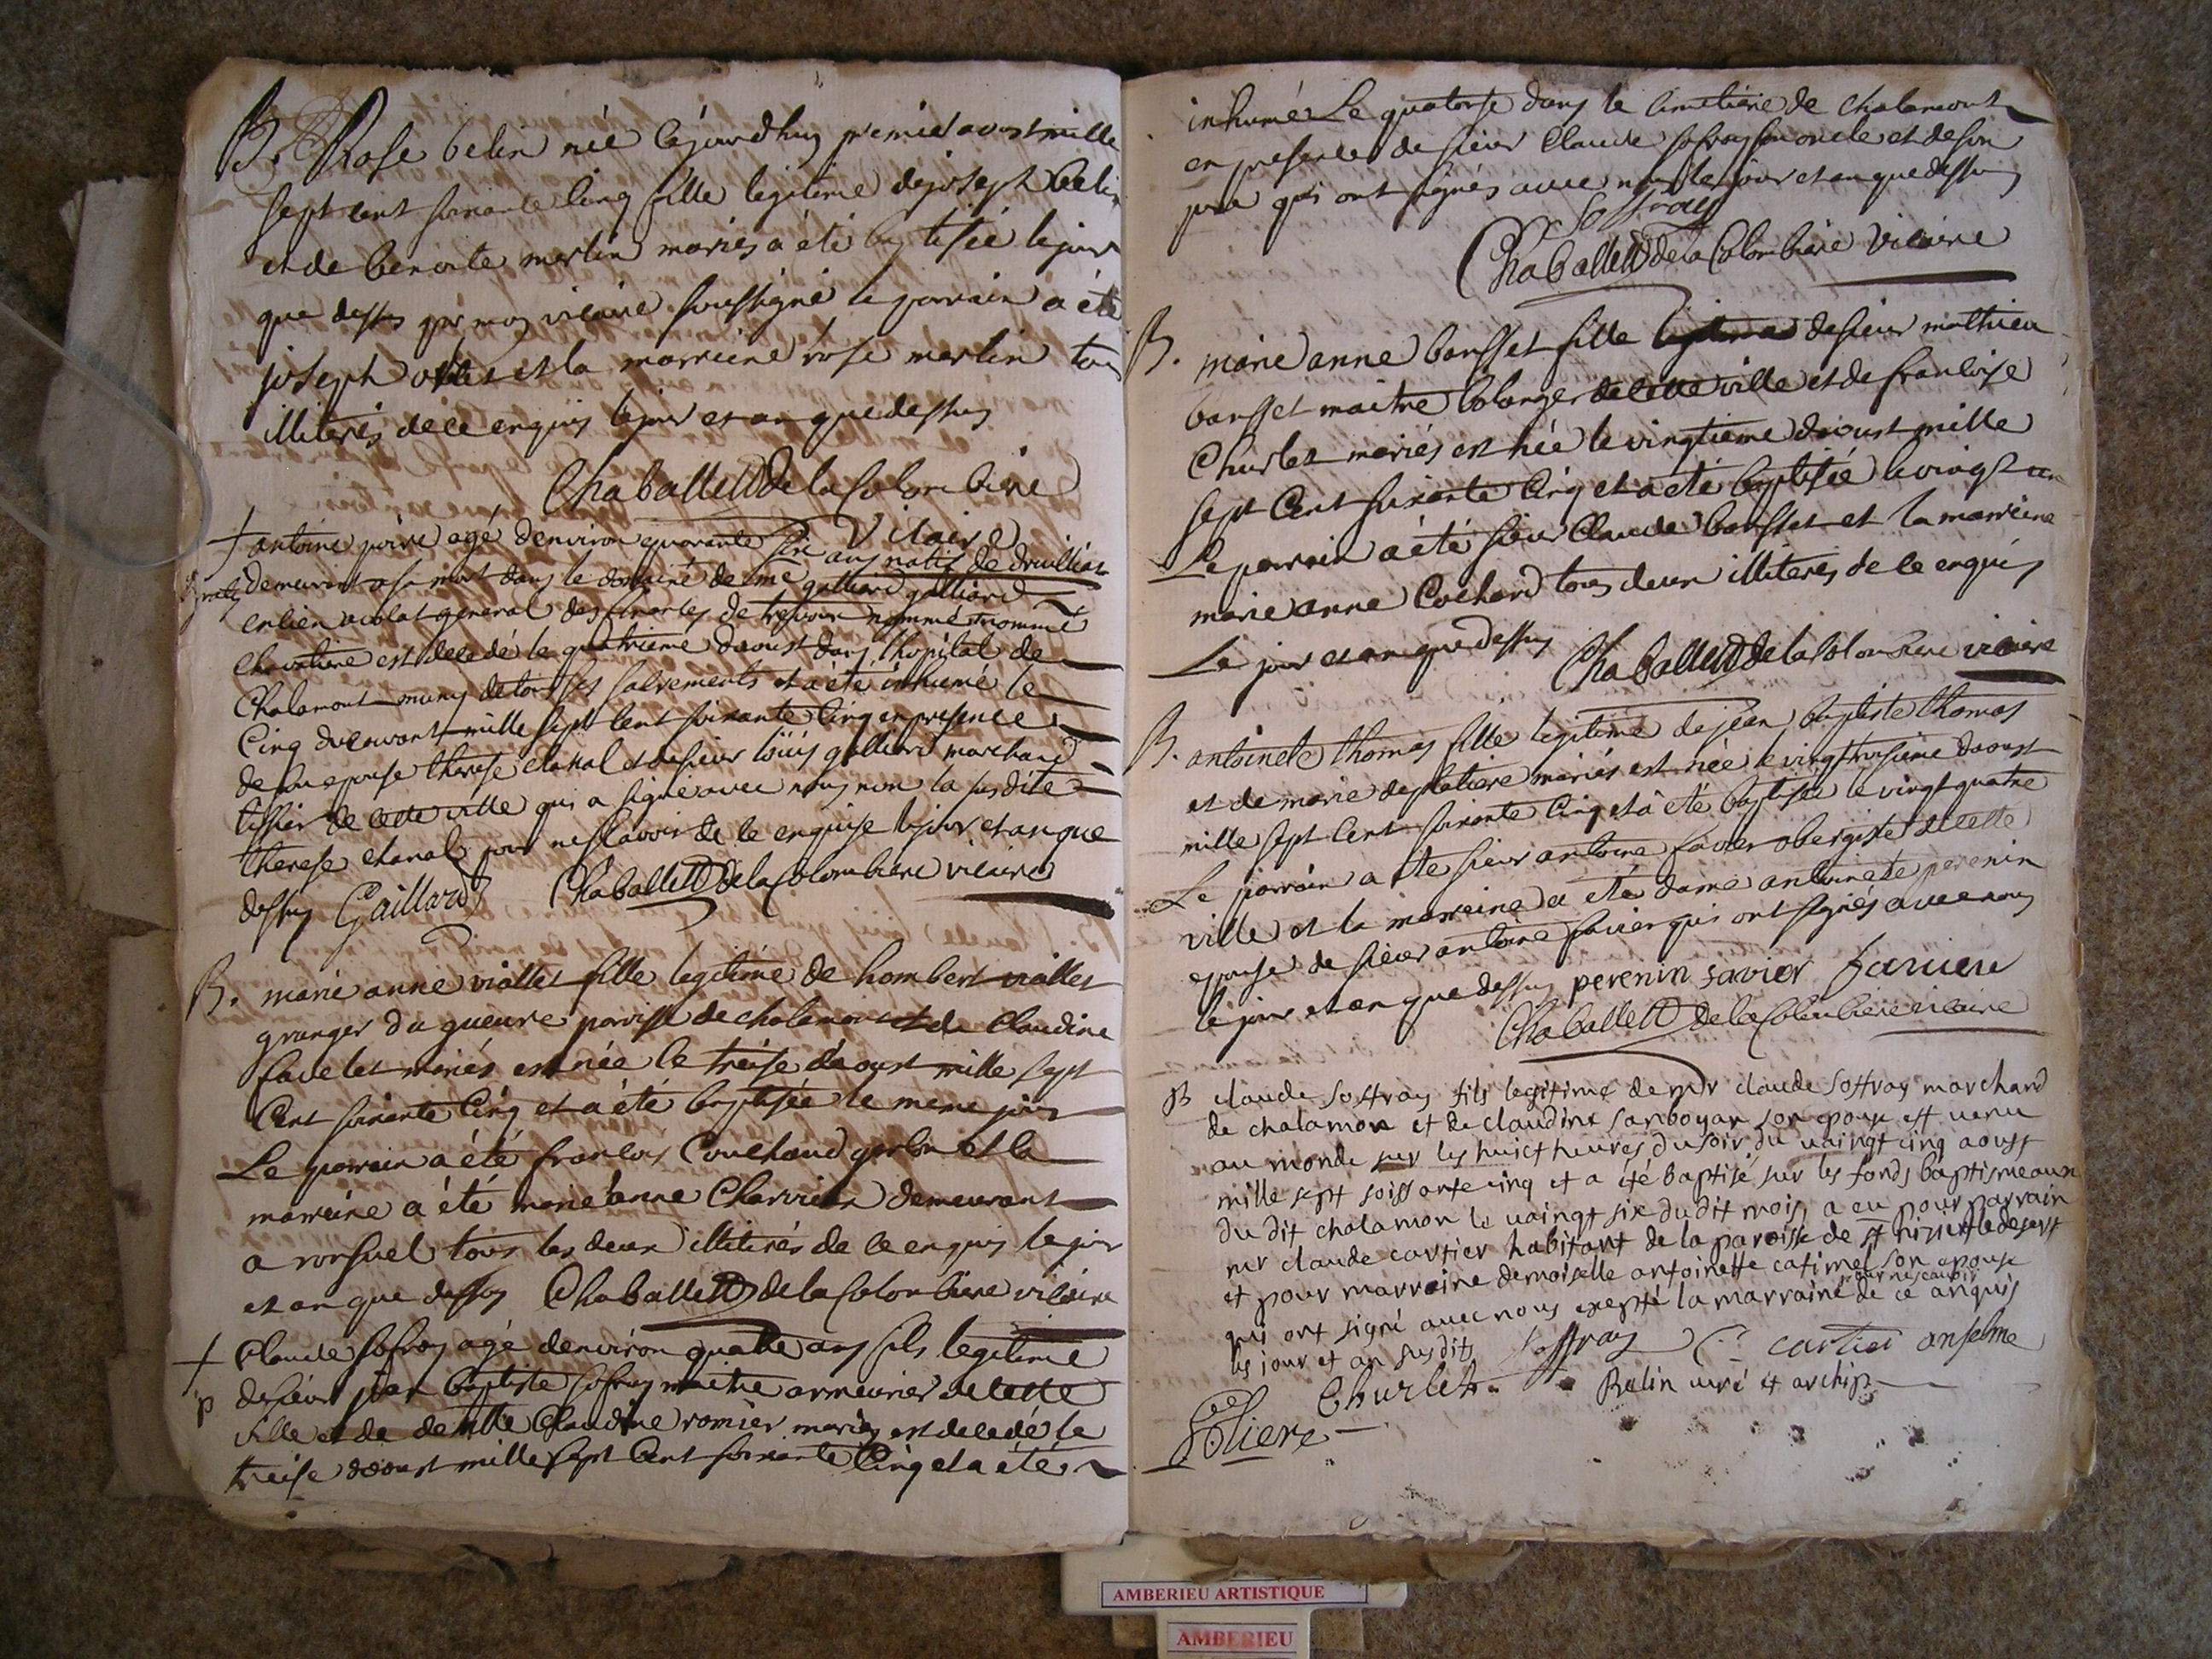 B. Rose belin née cejourdhuy premier aoust mille
sept cent soixante cinq fille legitime de joseph belin
et de benoite merlin mariés a été baptisée le jour
que dessus par moy vicaire soussigné le parrain a été
joseph et la marreine rose merlin tous
illiterés de ce enquis le jour et an que dessus
Chaballett de la Colombiere
Vicaire
+ antoine poire agé denviron quarante six ans natif de druillias
demeurant a sa mort dans le domaine de me galliard galliard
en lieu avocat general des finances de trevoux nommé nommé
chavaliere est decedé le quatrieme daoust dans lhopital de
Chalamont muny de tous ses sacrements et a été inhumé le
Cinq du courant mille sept cent soixante cinq en presence
de son epouse therese chanal et de sieur loüis galliard marchand
tissier de cette ville qui a signé avec nous non la susdite
therese chanal pour ne scavoir de ce enquise le jour et an que
dessus Gaillard Chaballett de la Colombiere vicaire
B. marie anne viallet fille legitime de hombert viallet
granger du gueure paroisse de chalamont et de Claudine
favelet mariés est née le treise daoust mille sept
Cent soixante Cinq et a été baptisée le meme jour
Le parrain a été francois Couchaud et la
marreine a été marie anne Charvier demeurant
a ronsuel tous les deux illiterés de ce enquis le jour
et an que dessus Chaballett de la Colombiere vicaire
+ Claude sofray agé denviron quatre ans fils legitime
p de sieur jean baptiste sofray maitre armeurier de cette
ville et de delle Claudine romier mariés est decedé le
treise daoust mille sept Cent soixante Cinq et a été
inhumé Le quatorse dans le cimetiere de chalamont
en presence de sieur Claude sofray son oncle et de son
pere qui ont signés avec nous le jour et an que dessus
soffray
Chaballett de la Colombiere Vicaire
B. marie anne bausset fille legitime de sieur mathieu
bausset maitre bolanger de cette ville et de francoise
Churlet mariés est née le vingtieme daoust mille
sept Cent soixante Cinq et a été baptisée le vingt un
Le parrain a été sieur Claude bausset et la marreine
marie anne Cochard tous deux illiterés de ce enquis
Le jour et an que dessus Chaballett de la Colombiere vicaire
B. antoinete thomas fille legitime de jean baptiste thomas
et de marie deplatiere mariés est née le vingt troisieme daoust
mille sept Cent soixante Cinq et a été baptisée le vingt quatre
Le parrain a ete sieur antoine favier obergiste de cette
ville et la marreine a été dame antoinete perenin
epouse de sieur antoine favier qui ont signés avec nous
le jour et an que dessus perenin savier favier
Chaballett de la Colombiere vicaire
B claude soffray fils legitime de mr claude soffray marchand
de chalamon et de claudine sanboyar son epouse est venu
au monde sur les huict heures du soir du vaingt cinq aoust
mille sept soissante cinq et a été baptisé sur les fonds baptismeaux
du dit chalamon le vaingt six du dit mois, a eu pour parrain
mr claude cartier habitant de la paroisse de st nizier le desert
et pour marraine demoiselle antoinette catimel son epouse
qui ont signé avec nous exepté la marraine pour ne scavoir de ce anquis
les jour et an susdits soffray cartier anselme
Churlet. Belin curé et archip.